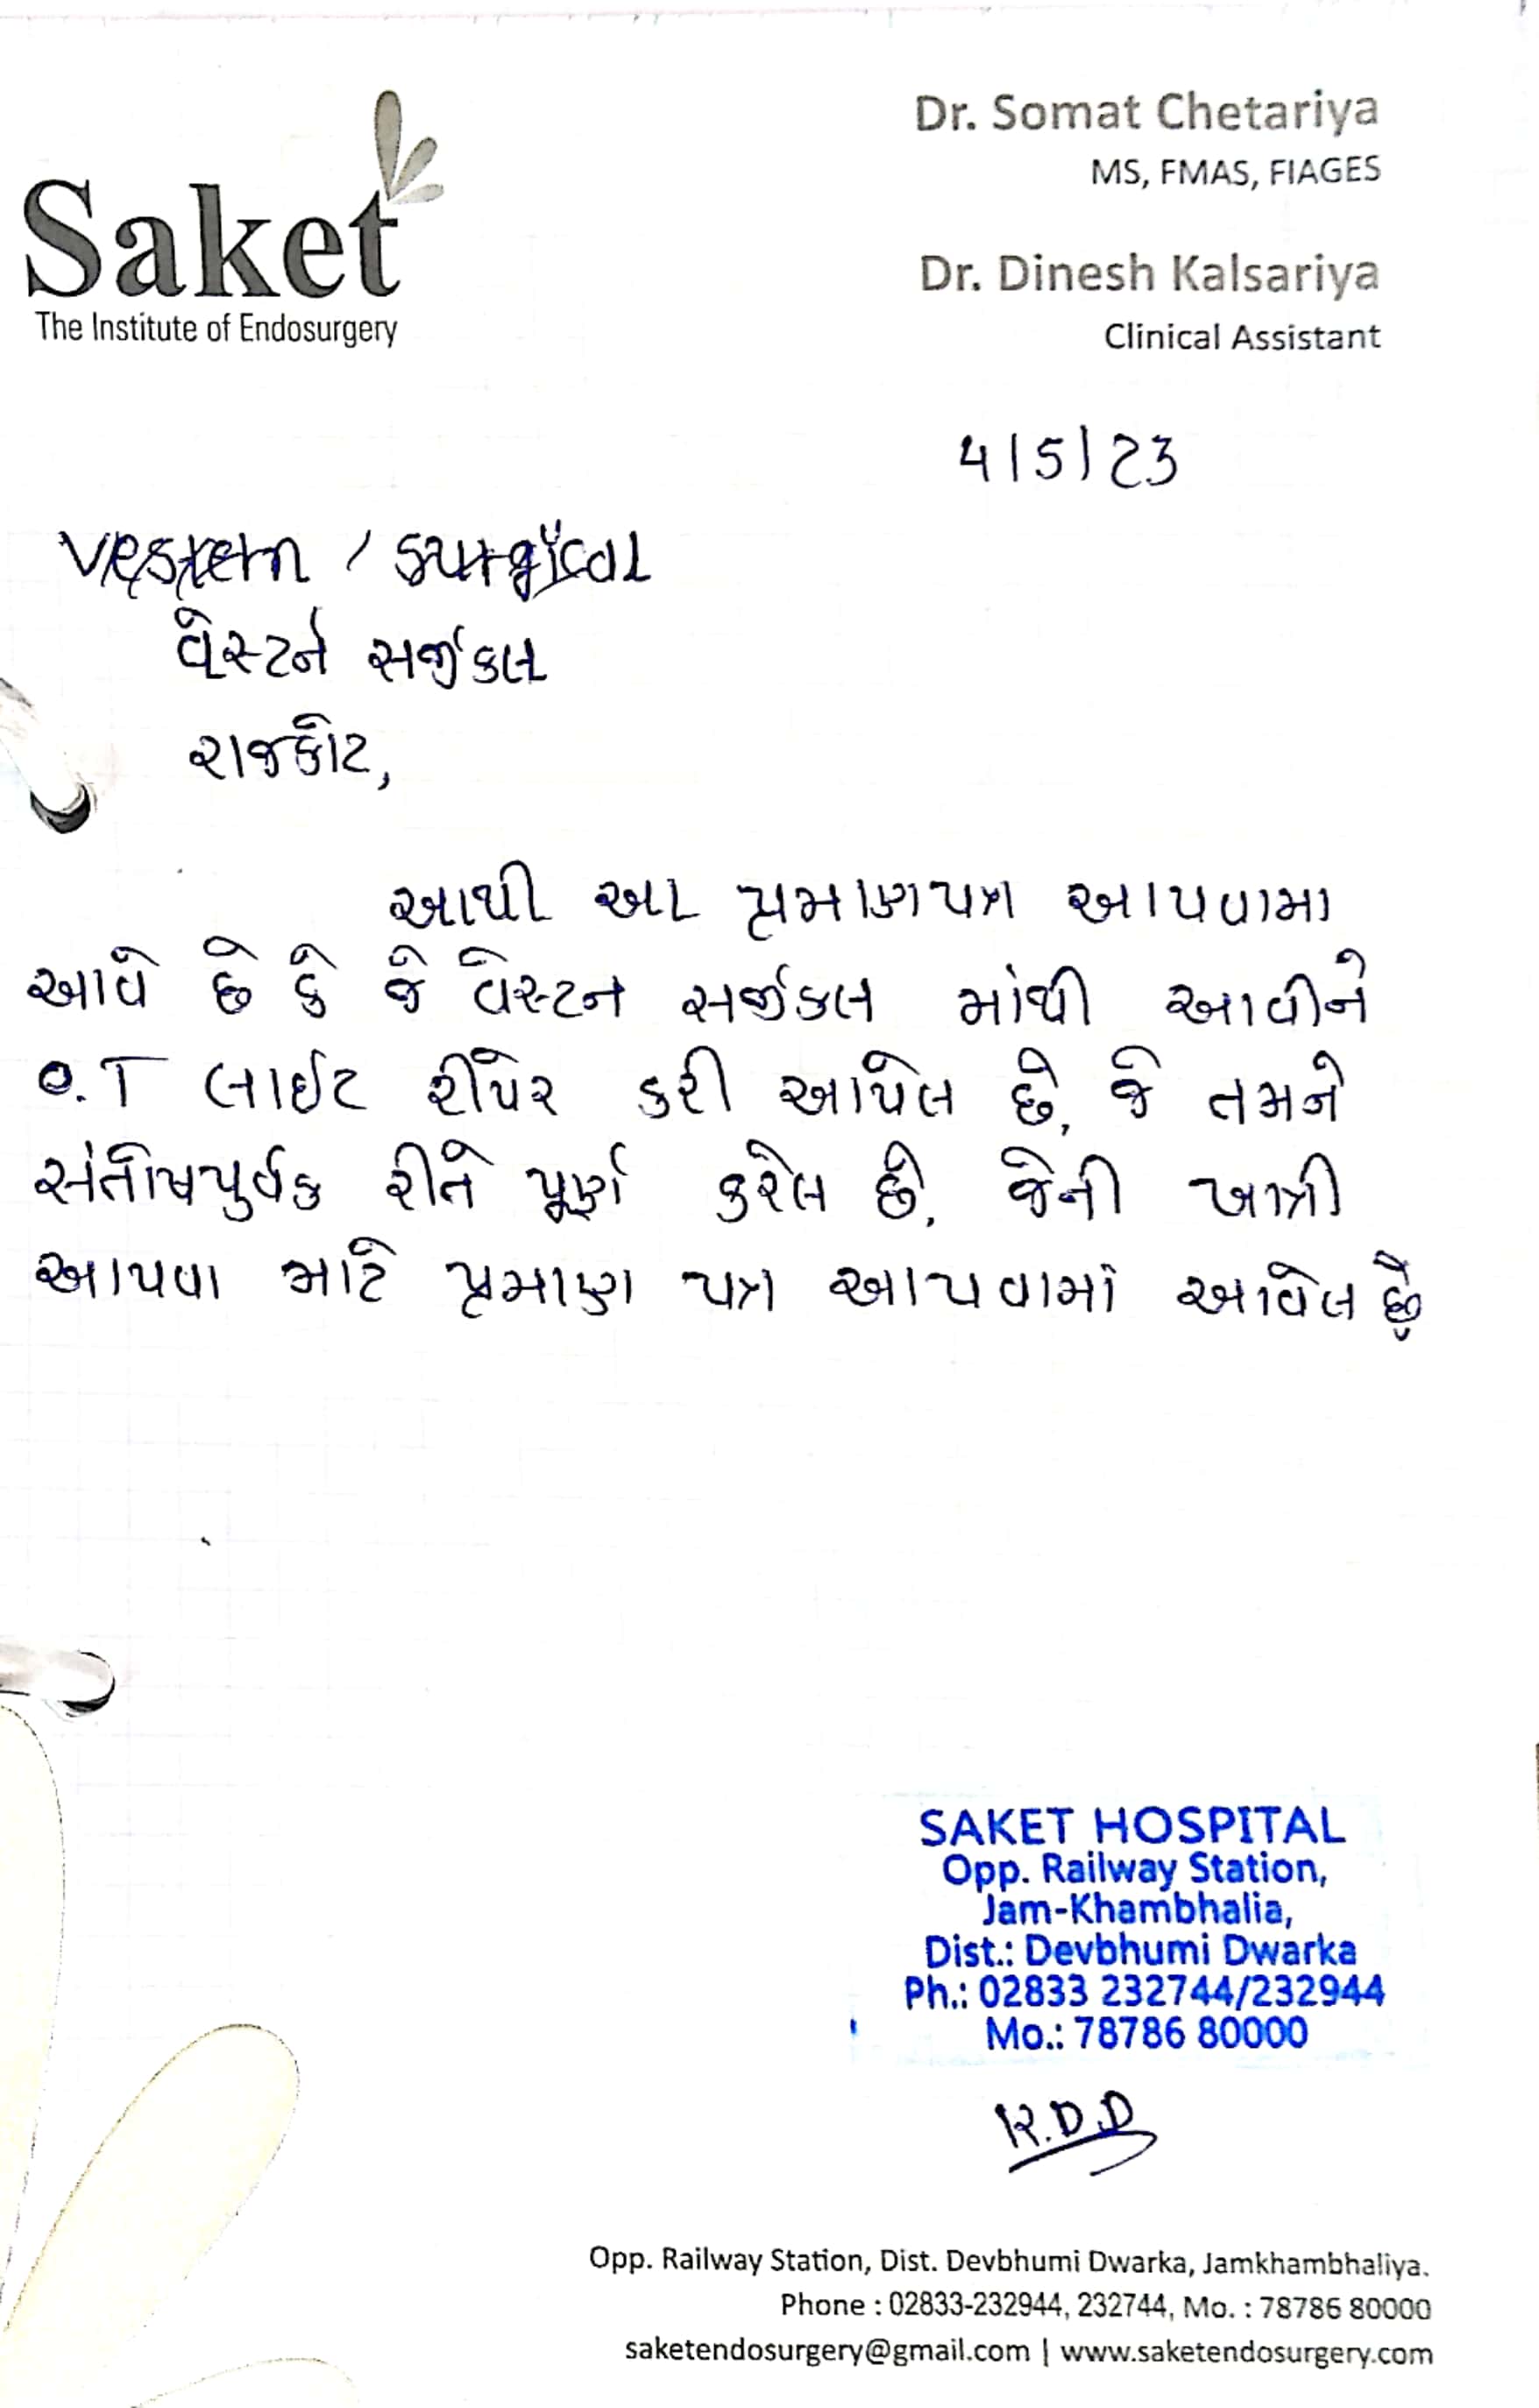 Saket
The Institute of Endosurgery
Dr. Somat Chetariya
MS, FMAS, FIAGES
Dr. Dinesh Kalsariya
Clinical Assistant
4/5/23
Vestern / surgical
વેસ્ટર્ન સર્જીકલ
રાજકોટ,
આથી આ પ્રમાણપત્ર આપવામા
આવે છે કે જે વેસ્ટન સર્જીકલ માંથી આવીને
O.T લાઈટ રીપેર કરી આપેલ છે, જે તમને
સંતોષપુર્વક રીતે પૂર્ણ કરેલ છે. જેની ખાત્રી
આપવા માટે પ્રમાણ પત્ર આપવામાં આવેલ છે
SAKET HOSPITAL
Opp. Railway Station,
Jam-Khambhalia,
Dist.: Devbhumi Dwarka
Ph.: 02833 232744/232944
Mo.: 78786 80000
R.D.D
Opp. Railway Station, Dist. Devbhumi Dwarka, Jamkhambhaliya.
Phone : 02833-232944, 232744, Mo. : 78786 80000
saketendosurgery@gmail.com | www.saketendosurgery.com